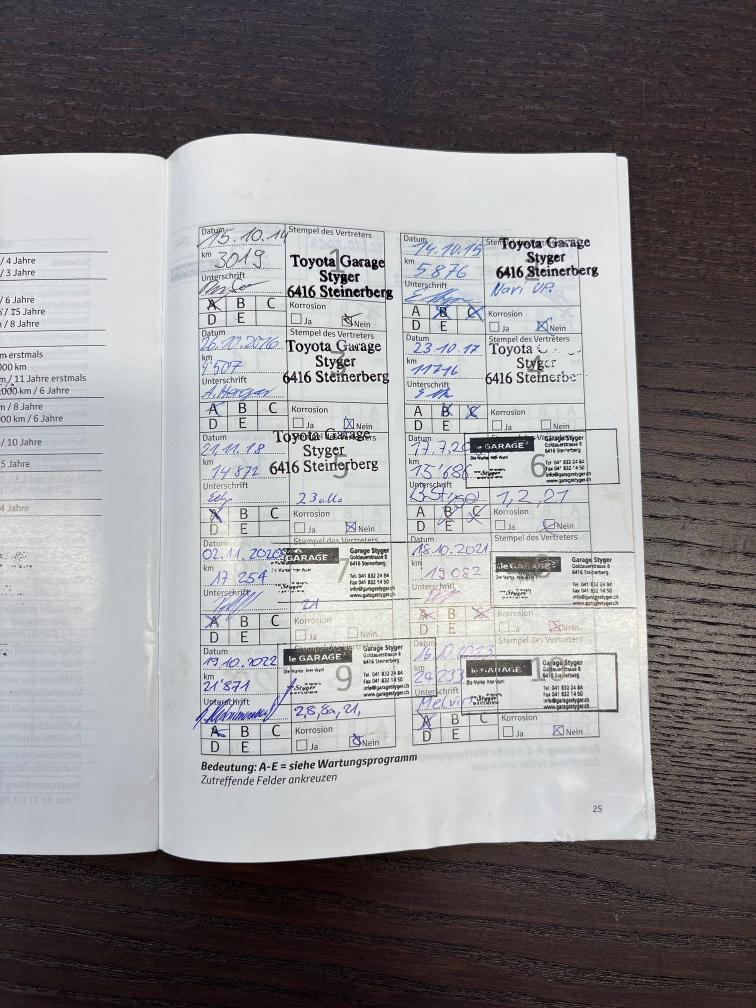 / 4 Jahre
/ 3 Jahre
/ 6 Jahre
/ 15 Jahre
/ 8 Jahre
m erstmals
000 km
m / 11 Jahre erstmals
000 km / 6 Jahre
/ 8 Jahre
00 km / 6 Jahre
/ 10 Jahre
5 Jahre
4 Jahre
Datum 15.10.14
km 3019
Unterschrift
Stempel des Vertreters
1
Toyota Garage
Styger
6416 Steinerberg
A B C
D E
Korrosion
Ja Nein
Datum 14.10.15
km 5876
Unterschrift
Toyota Garage
Styger
6416 Steinerberg
Navi UP.
A B C
D E
Korrosion
Ja Nein
Datum 26.10.2016
km 9507
Unterschrift
Stempel des Vertreters
3
Toyota Garage
Styger
6416 Steinerberg
A B C
D E
Korrosion
Ja Nein
Datum 23.10.17
km 11716
Unterschrift
Stempel des Vertreters
4
Toyota
Styger
6416 Steinerbe
A B C
D E
Korrosion
Ja Nein
Datum 21.11.18
km 14872
Unterschrift
5
Toyota Garage
Styger
6416 Steinerberg
A B C
D E
Korrosion
Ja Nein
Datum 17.7.20
km 15'686
Unterschrift
6
le GARAGE
Styger
Garage Styger
Goldauerstrasse 8
6416 Steinerberg
info@garagestyger.ch
www.garagestyger.ch
1, 2, 21
A B C
D E
Korrosion
Ja Nein
Datum 02.11.2020
km 17254
Unterschrift
Stempel des Vertreters
7
GARAGE
Styger
Garage Styger
Goldauerstrasse 8
6416 Steinerberg
Tel. 041 832 24 84
Fax 041 832 14 50
info@garagestyger.ch
www.garagestyger.ch
21
A B C
D E
Korrosion
Ja Nein
Datum 18.10.2021
km 19082
Unterschrift
Stempel des Vertreters
le GARAGE
Die Marke Ihrer Wahl
Styger
Garage Styger
Goldauerstrasse 8
6416 Steinerberg
Tel. 041 832 24 84
Fax 041 832 14 50
info@garagestyger.ch
www.garagestyger.ch
A B C
D E
Korrosion
Ja Nein
Datum 19.10.2022
km 21'871
Unterschrift
Stempel des Vertreters
9
le GARAGE
Die Marke Ihrer Wahl
Styger
Garage Styger
Goldauerstrasse 8
6416 Steinerberg
Tel. 041 832 24 84
Fax 041 832 14 50
info@garagestyger.ch
www.garagestyger.ch
2,8,8a,21,
A B C
D E
Korrosion
Ja Nein
Datum
km 24233
Unterschrift
Melvin
Stempel des Vertreters
le GARAGE
Die Marke Ihrer Wahl
Styger
Garage Styger
Goldauerstrasse 8
6416 Steinerberg
Tel. 041 832 24 84
Fax 041 832 14 50
info@garagestyger.ch
www.garagestyger.ch
A B C
D E
Korrosion
Ja Nein
Bedeutung: A-E = siehe Wartungsprogramm
Zutreffende Felder ankreuzen
25